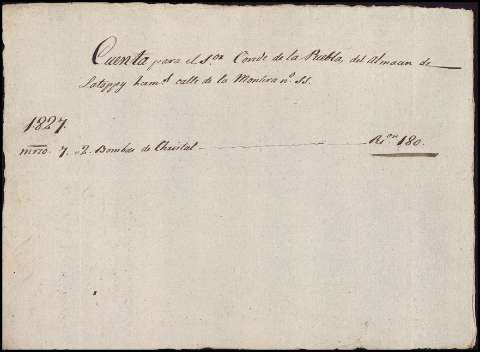 Cuenta para el S.or Conde de la Puebla, del Almacen de
Latoppy herm.s calle de la Montera n.o 55.
1827.
mrzo. 7. 2. Bombas de Christal R.s on 180.